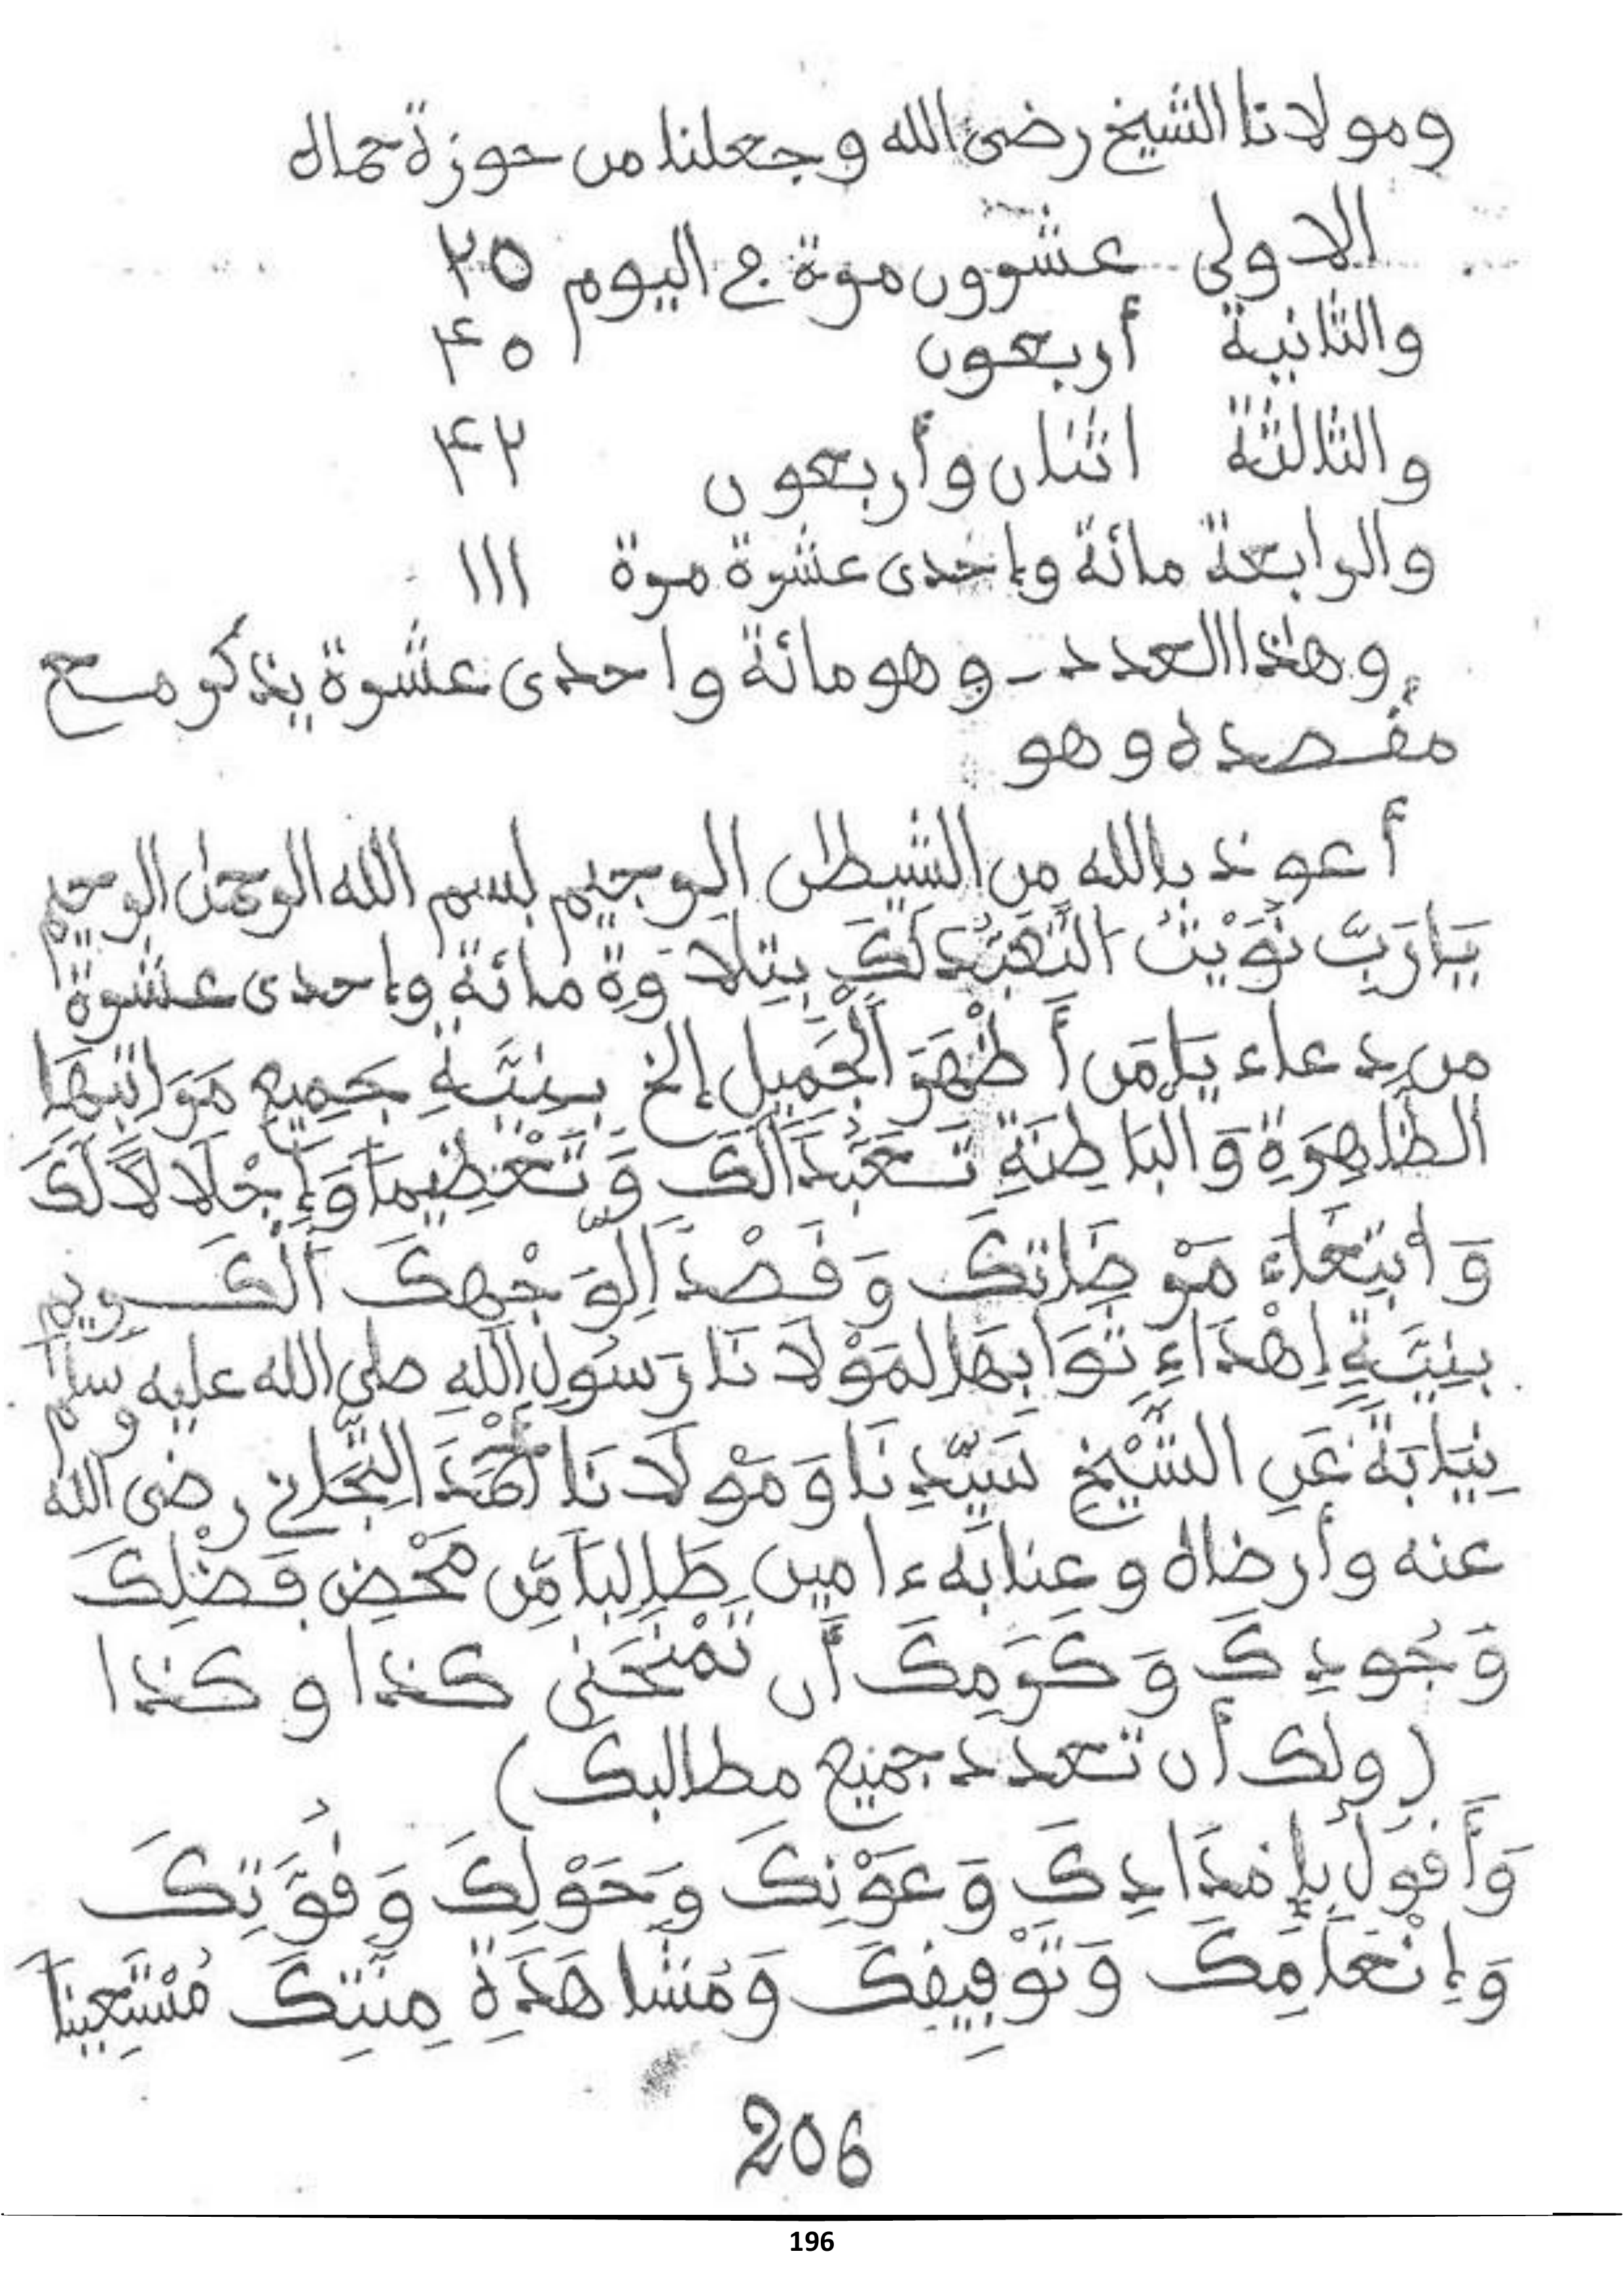 ومولانا الشيخ رضى الله وجعلنا من حوزة حماله
الاولى عشرون مرة في اليوم ٢٥
والثانية أربعون ٤٥
والثالثة اثنان وأربعون ٤٢
والرابعة مائة وإحدى عشرة مرة ١١١
وهذا العدد ـ وهو مائة واحدى عشرة يذكر مع
مقصده وهو
أعوذ بالله من الشيطٰن الرجيم بسم الله الرحمٰن الرحيم
يَا رَبِّ نَوَيْتُ التَّعَبُّدَ لَكَ بِتِلَاوَةِ مائة وإحدى عشرة
من دعاء يَا مَن أَظْهَرَ الْجَمِيلَ إلخ بِنِيَّةِ جَمِيعِ مَرَاتِبِهَا
الظَّاهِرَةِ وَالْبَاطِنَةِ تَعَبُّدًا لَّكَ وَتَعْظِيمًا وَإِجْلَالًا لَّكَ
وَابْتِغَاءَ مَرْضَاتِكَ وَقَصْدًا لِّوَجْهِكَ الْكَرِيمِ
بِنِيَّةِ إِهْدَاءِ ثَوَابِهَا لِمَوْلَانَا رَسُولِ اللَّهِ صلى الله عليه وسلم
نِيَابَةً عَنِ الشَّيْخِ سَيِّدِنَا وَمَوْلَانَا أَحْمَدَ التِّجَانِي رضى الله
عنه وأرضاه وعنا به ءامين طَالِبًا مِّن مَحْضِ فَضْلِكَ
وَجُودِكَ وَكَرَمِكَ أَن تَمْنَحَنِي كذا وكذا
(ولك أن تعدد جميع مطالبك)
وَأَقُولُ بِإِمْدَادِكَ وَعَوْنِكَ وَحَوْلِكَ وَقُوَّتِكَ
وَإِنْعَامِكَ وَتَوْفِيقِكَ وَمُشَاهَدَةِ مِنَّتِكَ مُسْتَعِينًا
206
196